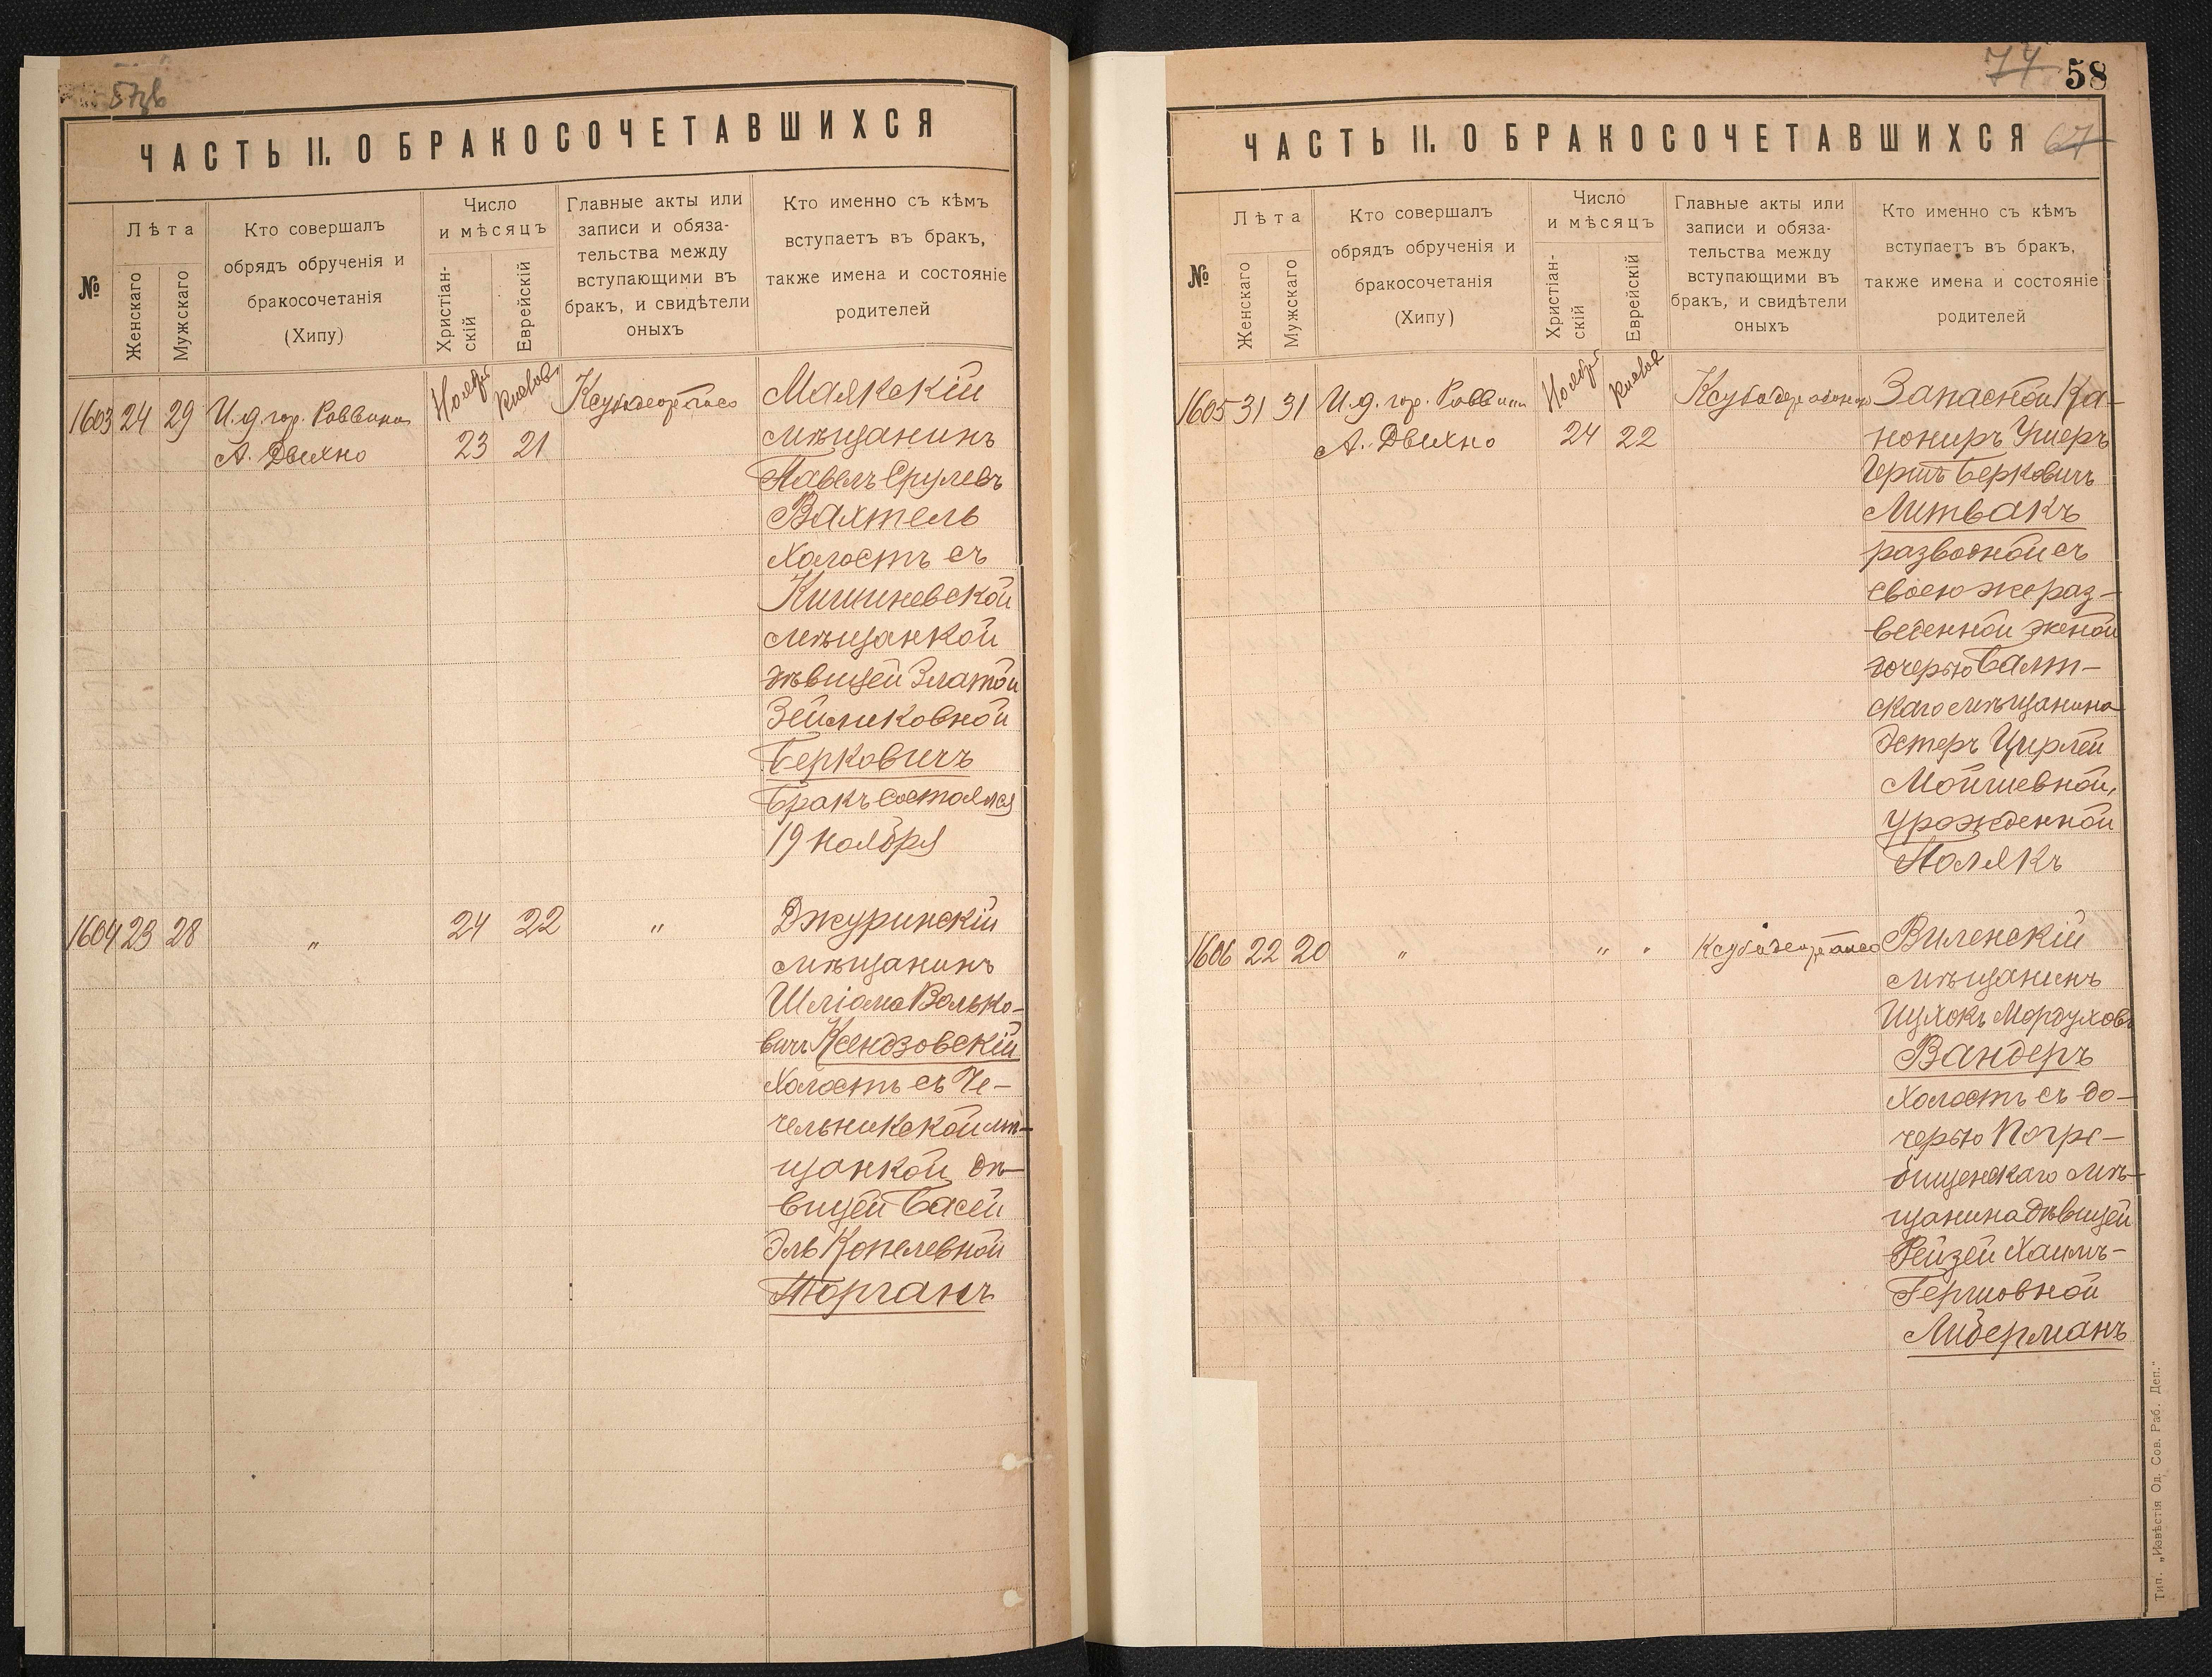 57об
ЧАСТЬ II. О БРАКОСОЧЕТАВШИХСЯ
№
Лѣта
Женскаго
Мужскаго
Кто совершалъ
обрядъ обрученія и
бракосочетанія
(Хипу)
Число
и мѣсяцъ
Христіан-
скій
Еврейскій
Главные акты или
записи и обяза-
тельства между
вступающими въ
бракъ, и свидѣтели
оныхъ
Кто именно съ кѣмъ
вступаетъ въ бракъ,
также имена и состояніе
родителей
1603 24 29
И.д. гор. Раввина
А. Двихно
Ноября
Кислов
23 21
Маякскій
мѣщанинъ
Павелъ Срулевъ
Вахтель
холостъ съ
Кишиневской
мѣщанкой
дѣвицей Златой
Зейликовной
Берковичъ
Бракъ состоялся
19 ноября
1604 23 28
„
24 22
„
Джуринскій
мѣщанинъ
Шліома Волько-
вичъ Ксендзовскій
холостъ съ Че-
чельникской мѣ-
щанкой дѣ-
вицей Басей
Эль Копелевной
Тюрганъ
74 58
ЧАСТЬ II. О БРАКОСОЧЕТАВШИХСЯ 67
№
Лѣта
Женскаго
Мужскаго
Кто совершалъ
обрядъ обрученія и
бракосочетанія
(Хипу)
Число
и мѣсяцъ
Христіан-
скій
Еврейскій
Главные акты или
записи и обяза-
тельства между
вступающими въ
бракъ, и свидѣтели
оныхъ
Кто именно съ кѣмъ
вступаетъ въ бракъ,
также имена и состояніе
родителей
1605 31 31
И.д. гор. Раввина
А. Двихно
Ноября
Кислов
24 22
Запасной Ка-
нониръ Ушеръ
Гершъ Берковичъ
Литвакъ
разводной съ
своею же раз-
веденной женой
дочерью Балт-
скаго мѣщанина
Эстеръ Цирлей
Мойшевной,
урожденной
Полякъ
1606 22 20
„
„ „
Виленскій
мѣщанинъ
Ицхокъ Мордуховъ
Вандеръ
холостъ съ до-
черью Погре-
бищенскаго мѣ-
щанина дѣвицей
Рейзей Хаимъ-
Гершовной
Либерманъ
Тип. „Извѣстія Од. Сов. Раб. Деп."